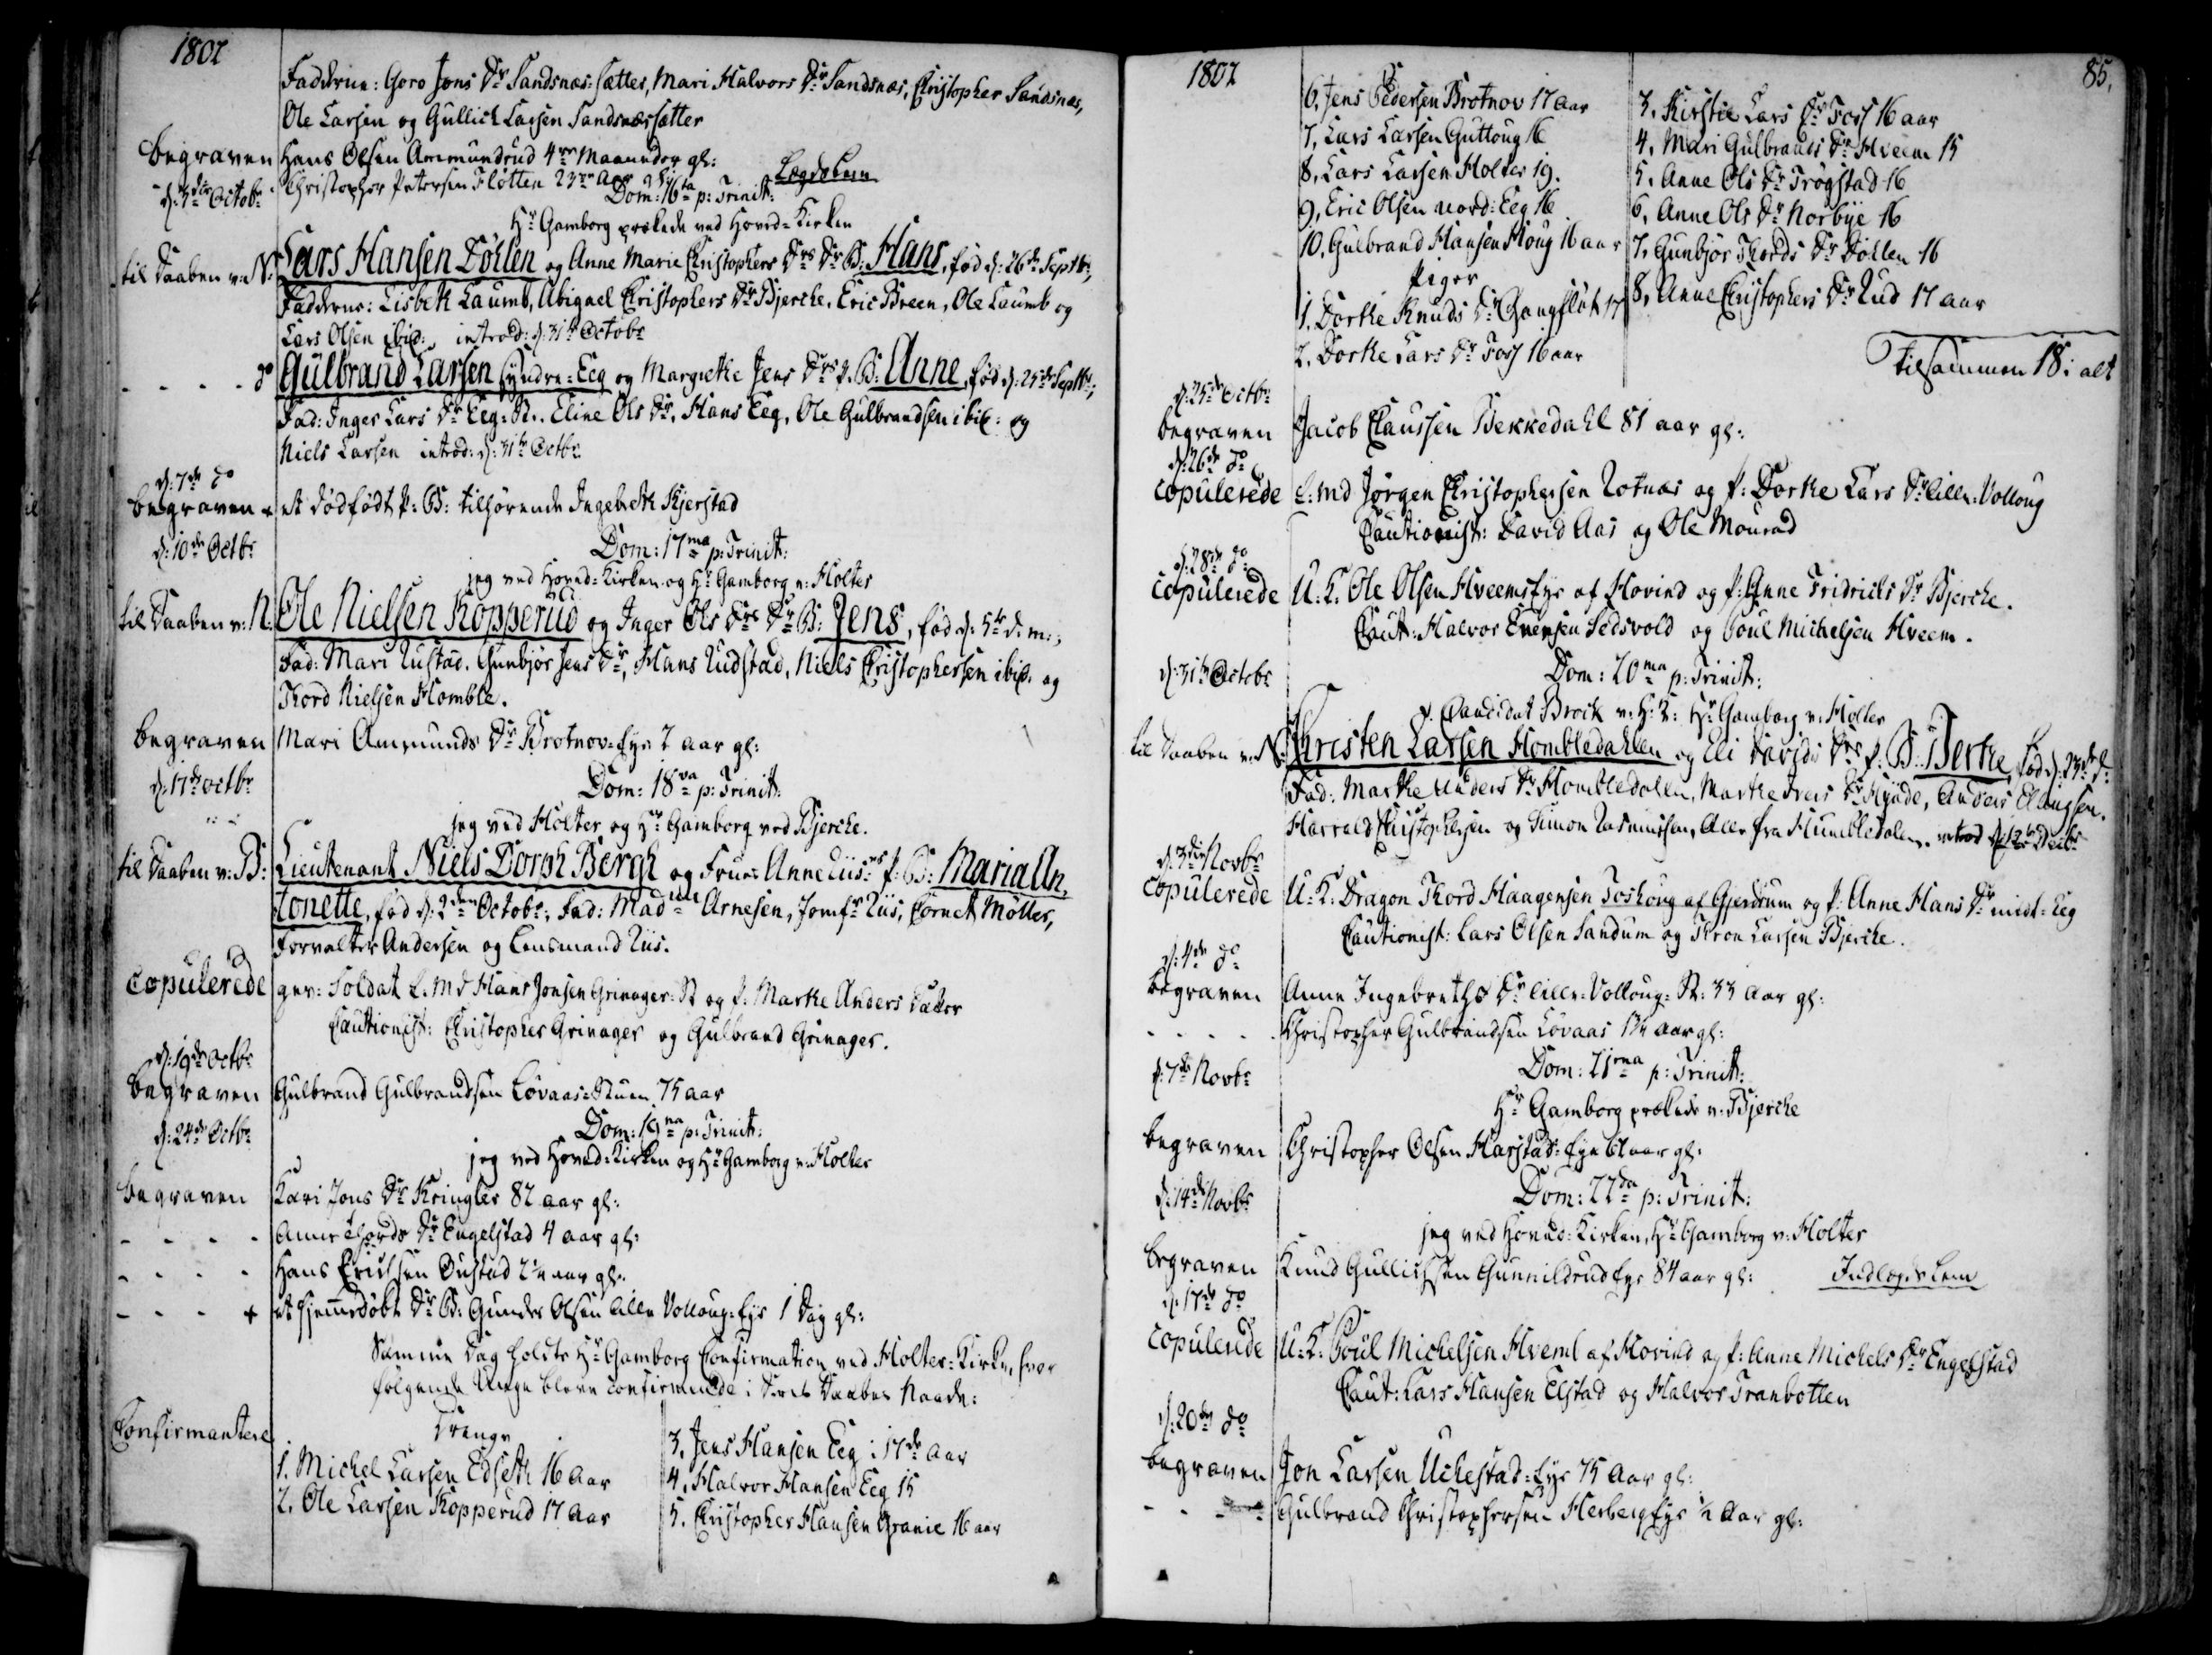 1802
Fadderne: Goro Jens Dr Sandsnæs-sætter, Mari Halvors Dr Sandsnæs, Christopher Sandsnæs,
Ole Larsen og Gullich Larsen Sandsnæssætter
begraven Hans Olsen Ammundrud 4re Maaneder gl:
Christopher Petersen Fløtten 23 Aar gl: Lægdslem
d: 3die Octobr Dom: 16ta p: Trinit:
Hr Gamborg prækede ved Hoved-Kirken
til Daaben v: N: Lars Hansen Døhlen og Anne Marie Christophers Drs Dr B: Hans, fød d: 26de Septbr,
Fadderne: Lisbeth Laumb, Abigael Christophers Dr Bjerche, Eric Breen, Ole Laumb og
Lars Olsen ibid: introd: d: 31te Octobr
- - - - do Gulbrand Larsen Syndre-Eeg og Margrethe Jens Drs P: B: Anne, fød d: 25de Septbr;
Fad: Inger Lars Dr Eeg-St., Eline Ols Dr, Hans Eeg, Ole Gulbrandsen ibid: og
Niels Larsen introd: d: 31te Octbr
d: 7de do
begraven + et dødfødt P: B: tilhørende Ingebreth Kjerstad
d: 10de Octbr Dom: 17ma p: Trinit:
jeg ved Hoved-Kirken og Hr Gamborg v: Holter
til Daaben v: N: Ole Nielsen Kopperud og Inger Ols Drs Dr B: Jens, fød d: 5te d. m.;
Fad: Mari Rustad, Gunbjør Jens Dr, Hans Rudstad, Niels Christophersen ibid. og
Thord Nielsen Homble.
begraven Mari Ammunds Dr Brotnov-Eye 2 aar gl:
d: 17de octbr Dom: 18va p: Trinit:
jeg ved Holter og Hr Gamborg ved Bjerche.
til Daaben v: B: Lieutenant Niels Dorph Bergh og Frues Anne Riis's P: B: Maria An-
tonette, fød d: 2den Octobr; Fad: Madlle Arnesen, Jomfr Riis, Cornet Møller,
Forvalter Andersen og Lensmand Riis.
copulerede gev: Soldat E. md Hans Jonsen Grinager-St og P: Marthe Anders Datter
Cautionist: Christopher Grinager og Gulbrand Grinager.
d: 19de Octbr
begraven Gulbrand Gulbrandsen Løvaas-Stuen 75 aar
d: 24de Octbr Dom: 19na p: Trinit:
jeg ved Hoved-Kirken og Hr Gamborg v: Holter
begraven Kari Jons Dr Kringler 82 aar gl:
- - - - Anne Thords Dr Engelstad 4 aar gl:
- - - - Hans Erichsen Oustad 2 1/4 aar gl:
- - - + et hjemmedøbt Dr B: Gunder Olsen Lille Volloug-Eye 1 Dag gl:
Samme Dag holdte Hr Gamborg Confirmation ved Holter-Kirke, hvor
følgende Unge bleve confirmerede i Deres Daabes Naade:
Confirmantere Drenge
1. Michel Larsen Edseth 16 Aar
2. Ole Larsen Kopperud 17 Aar
3. Jens Hansen Eeg i 17de Aar
4. Halvor Hansen Eeg 15
5. Christopher Hansen Granie 16 aar
1802 85.
6. Jens Pedersen Brotnov 17 Aar
7. Lars Larsen Guttoug 16
8. Lars Larsen Holter 19.
9. Eric Olsen nord-Eeg 16
10. Gulbrand Hansen Houg 16 aar
Piger
1. Dorthe Knuds Dr Gangfløt 17
2. Dorthe Lars Dr Foss 16 aar
3. Kirstie Lars Dr Foss 16 aar
4. Mari Gulbrands Dr Hveem 15
5. Anne Ols Dr Trøgstad 16
6. Anne Ols Dr Norbye 16
7. Gunbjør Thords Dr Døhlen 16
8. Anne Christophers Dr Rud 17 aar
Tilsammen 18: alt
d: 25de Octbr
begraven Jacob Claussen Bekkedahl 81 aar gl:
d: 26de do
copulerede E: md Jørgen Christophersen Rotnæs og P: Dorthe Lars Dr lille-Volloug
Cautionist: David Aas og Ole Mourad
d: 28de do
copulerede U: K: Ole Olsen Hveemseye af Hovind og P: Anne Fridrichs Dr Bjerche.
Caut: Halvor Evensen Sedsvold og Poul Michelsen Hveem.
d: 31te Octobr Dom: 20ma p: Trinit:
Candidat Brock v: H: K: Hr Gamborg v: Holter
til Daaben v: N: Christen Larsen Hombledahlen og Eli Davids Drs P: B: Berthe, fød d: 23de
Fad: Marthe Anders Dr Hombledalen, Marthe Ivers Dr Hynde, Anders Ellingsen,
Harrald Christophersen og Simon Rasmussen, Alle fra Humbledalen. introd d: 12te Decbr
d: 3die Novbr
copulerede U: K: Dragon Thord Haagensen Foshoug af Gjerdrum og P: Anne Hans Dr midt-Eeg
Cautionist: Lars Olsen Sandum og Thron Larsen Bjerche.
d: 4de do
begraven Anne Ingebreths Dr lille-Volloug-St: 33 Aar gl:
- - - - - Christopher Gulbrandsen Løvaas 13/4 aar gl:
d: 7de Novbr Dom: 21ma p: Trinit:
Hr Gamborg prækede v: Bjerche
begraven Christopher Olsen Harstad-Eye 61 aar gl:
d: 14de Novbr Dom: 22da p: Trinit:
jeg ved Hoved-Kirken, Hr Gamborg v: Holter
begraven Knud Gullichsen Gunnildrud Eye 84 aar gl: Indlagde Lem
d: 17de do
copulerede U: K: Poul Michelsen Hveml af Hovind og P: Anne Michels Dr Engelstad
Caut: Lars Hansen Elstad og Halvor Tranbotten
d: 20de do
begraven Jon Larsen Uchestad-Eye 75 Aar gl:
- - - Gulbrand Christophersen Herbergeye 1/2 Aar gl: